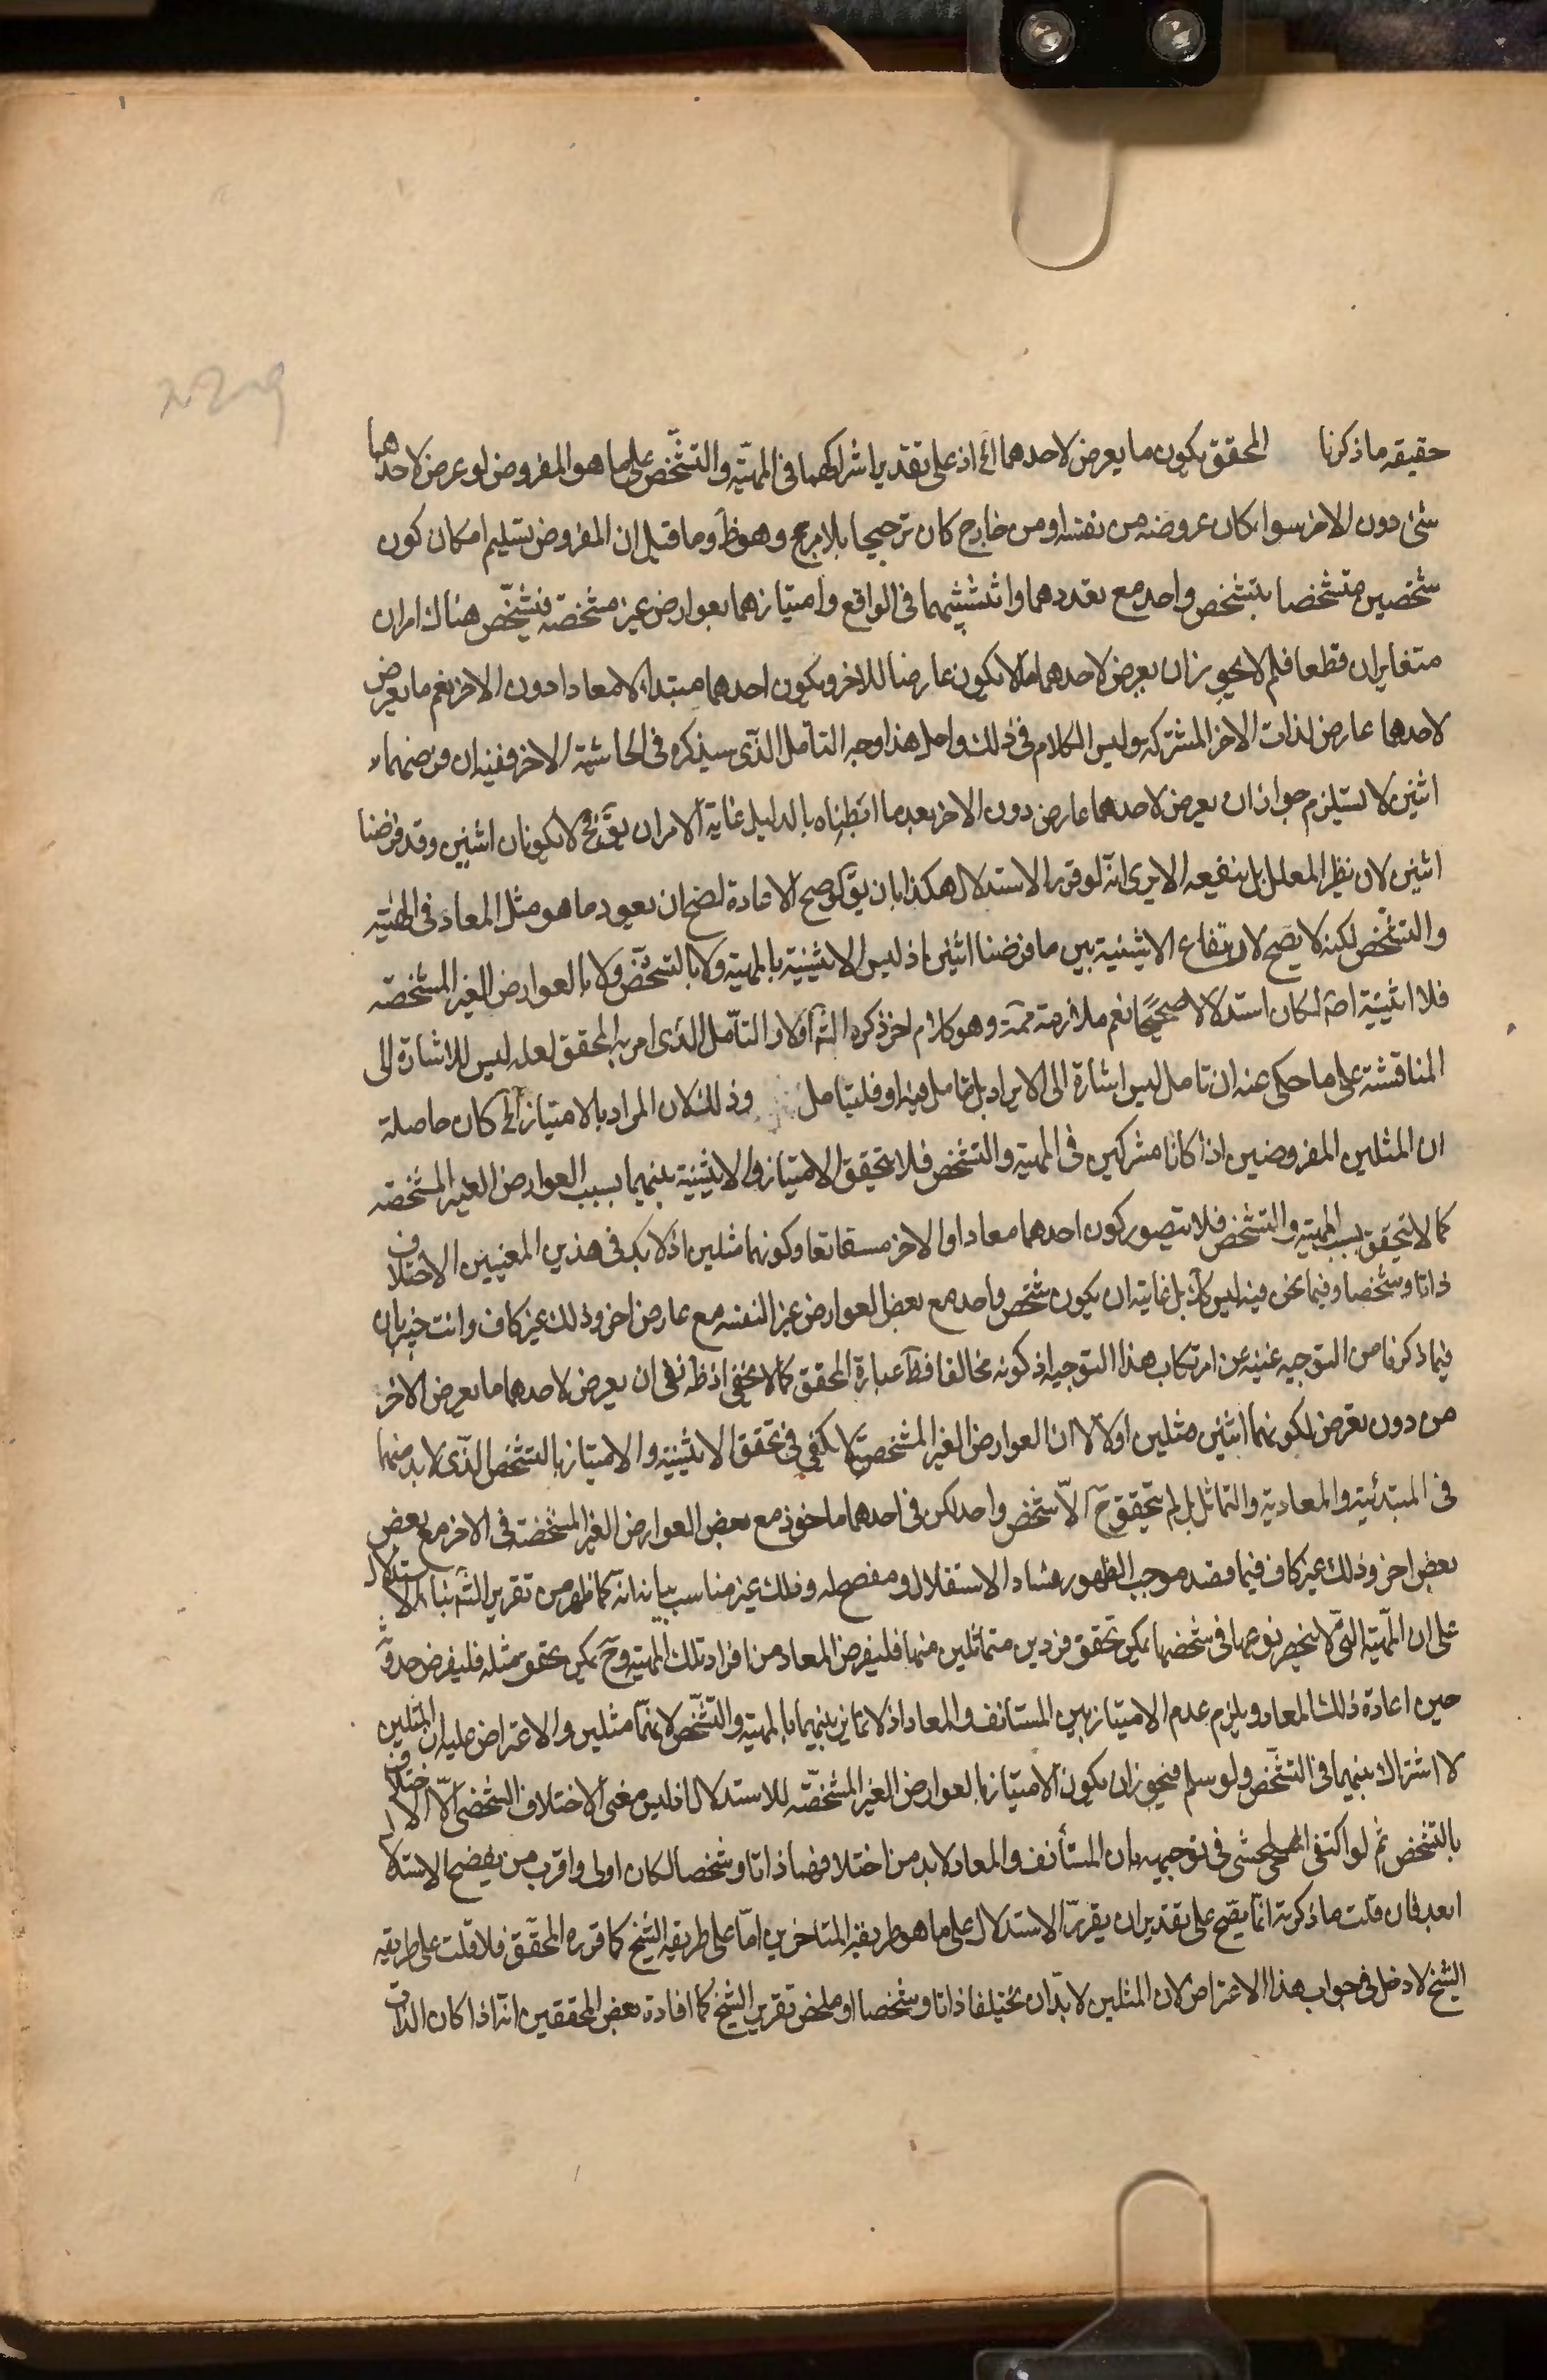 حقيقه ماذكرنا المحقق بكون ما يعرض لاحدهما الخ اذ على تقدير اشراكهما فى المهيّة والتشخّص على ما هو المفروض لو عرض لاحدهما
شئ دون الاخر سواء كان عروضه من نفسه او من خارج كان ترجيحا بلا مرجح وهو ظ وما قيل ان المفروض تسليم امكان كون
شخصين متشخصا بتشخص واحد مع تعددهما واثنينيتهما فى الواقع وامتيازهما بعوارض غير مشخصة فتشخّص هناك امران
متغايران قطعا فلم لا يجوز ان يعرض لاحدهما ما لا يكون عارضا للاخر ويكون احدهما مبتداء لا معادا دون الاخر نعم ما يعرض
لاحدهما عارض لذات الاخر المشتركه وليس الكلام فى ذلك ولعل هذا وجه التامل الذى سيذكره فى الحاشية الاخر ففيه ان فرضهما
اثنين لا يستلزم جواز ان يعرض لاحدهما عارض دون الاخر بعد ما ابطلناه بالدليل غاية الامر ان يقّ فح لا يكونان اثنين وقد فرضنا
اثنين لان نظير المعلل بل ينفيعه الا يرى انّه لو قرر الاستدلال هكذا بان يقّ لو صح الاعادة لصح ان يعود ما هو مثل المعاد فى المهيّه
والتشخّص لكنه لا يصح لارتفاع الاثينية بين ما فرضنا اثنين اذ ليس الاثينية بالمهية ولا بالتشخّص ولا بالعوارض الغير المشخصّه
فلا اثنيّة اصّه لكان استدلالا صحيحًا نعم ملازمته ممّة وهو كلام اخر ذكره الشّه اولا والتأمّل الذى امر به المحقق لعله ليس للاشارة الى
المناقشة على ما حكى عنه ان تامل ليس اشارة الى الايراد بل تامل فيه او فليتامل وذلك لان المراد بالامتياز الخ كان حاصلة
ان المثلين المفروضين اذا كانا مشركين فى المهية والتشخص فلا يتحقق الامتياز والاثينية بينهما بسبب العوارض الغير المشخصّه
كما لا يتحقق بسبب المهية والتشخص فلا يتصور كون احدهما معادا والاخر مستانفا وكونهما مثلين اذ لابد فى هذين المعنيين الاختلاف
ذاتا وشخصا وفيما نحن فيه ليس كك بل غايته ان يكون شخص واحد مع بعض العوارض غير النفسه مع عارض اخر وذلك غير كاف وانت خبير بان
فيما ذكرنا من التوجيه غنية عن ارتكاب هذا التوجيه اذ كونه مخالفا فظ عبارة المحقق كما لا يخفى اذ ظّه نفى ان يعرض لاحدهما ما يعرض الاخر
من دون تعرض لكونهما اثنين مثلين اولا لا ان العوارض الغير المشخصّة لا تكفى فى تحقق الاثينية والامتياز بالتشخص الذى لا بد منهما
فى المبتدئية والمعادية والتماثل بل لم يتحقق حّ الاّ شخص واحد لكن فى احدهما ماخوذ مع بعض العوارض الغير المشخصة فى الاخر مع بعض
بعض اخر وذلك غير كاف فيما قصد موجب لظهور فساد الاستقلال ومفصح له وذلك غير مناسب بيانه انه كما ظهر من تقرير الشّه بناء الاستدلال
على ان المهيّه التى لا ينحصر نوعها فى شخصها يمكن تحقق فردين متماثلين منها فليفرض المعاد من افراد تلك المهيّه وحّ يمكن تحقق مثله فليفرض حدوثه
حين اعادة ذلك المعاد ويلزم عدم الامتياز بين المستانف والمعاد اذ لا تمايز بينهما بالمهية والتشخّص لانهما مثلين والاعتراض عليه ان المثلين
لا اشتراك بينهما فى التشخّص ولو سلم فيجوز ان يكون الامتياز بالعوارض الغير المشخصّه للاستدلال اذ ليس معنى الاختلاف الشخصى الاّ الاختلاف
بالتشخص ثم لو اكتفى المحشى فى توجيهه بان المستأنف والمعاد لابد من اختلافهما ذاتا وشخصا لكان اولى واقرب من يفضح الاستدلال
ابعد فان قلت ما ذكرته انّما يصّح على تقدير ان يقرر الاستدلال على ما هو طريقة المتاخرين امّا على طريقه الشيخ كما قرره المحقق فلا قلت على طريقه
الشيخ لا دخل فى جواب هذا الاعتراض لان المثلين لابدّ ان يختلفا ذاتا وشخصا او ملخص تقرير الشيخ كما افاده بعض المحققين انّه اذا كان الذات